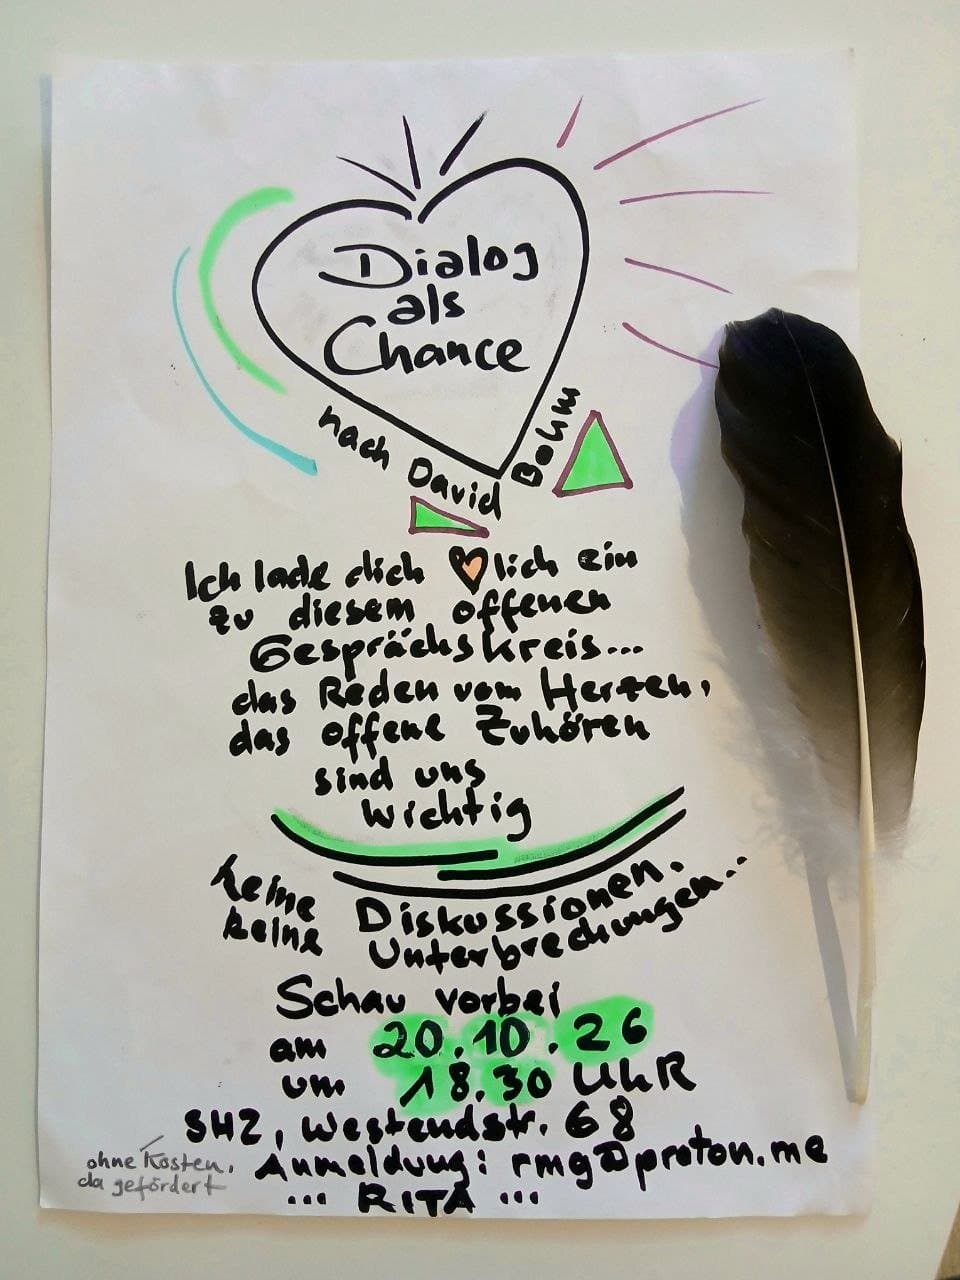 Dialog
als
Chance
nach David Bohm
Ich lade dich ♥lich ein
zu diesem offenen
Gesprächskreis...
das Reden vom Herzen,
das offene Zuhören
sind uns
wichtig
keine Diskussionen.
keine Unterbrechungen...
Schau vorbei
am 20.10.26
um 18.30 UhR
SHZ, Westendstr. 68
ohne Kosten,
da gefördert
Anmeldung: rmg@proton.me
... RITA ...